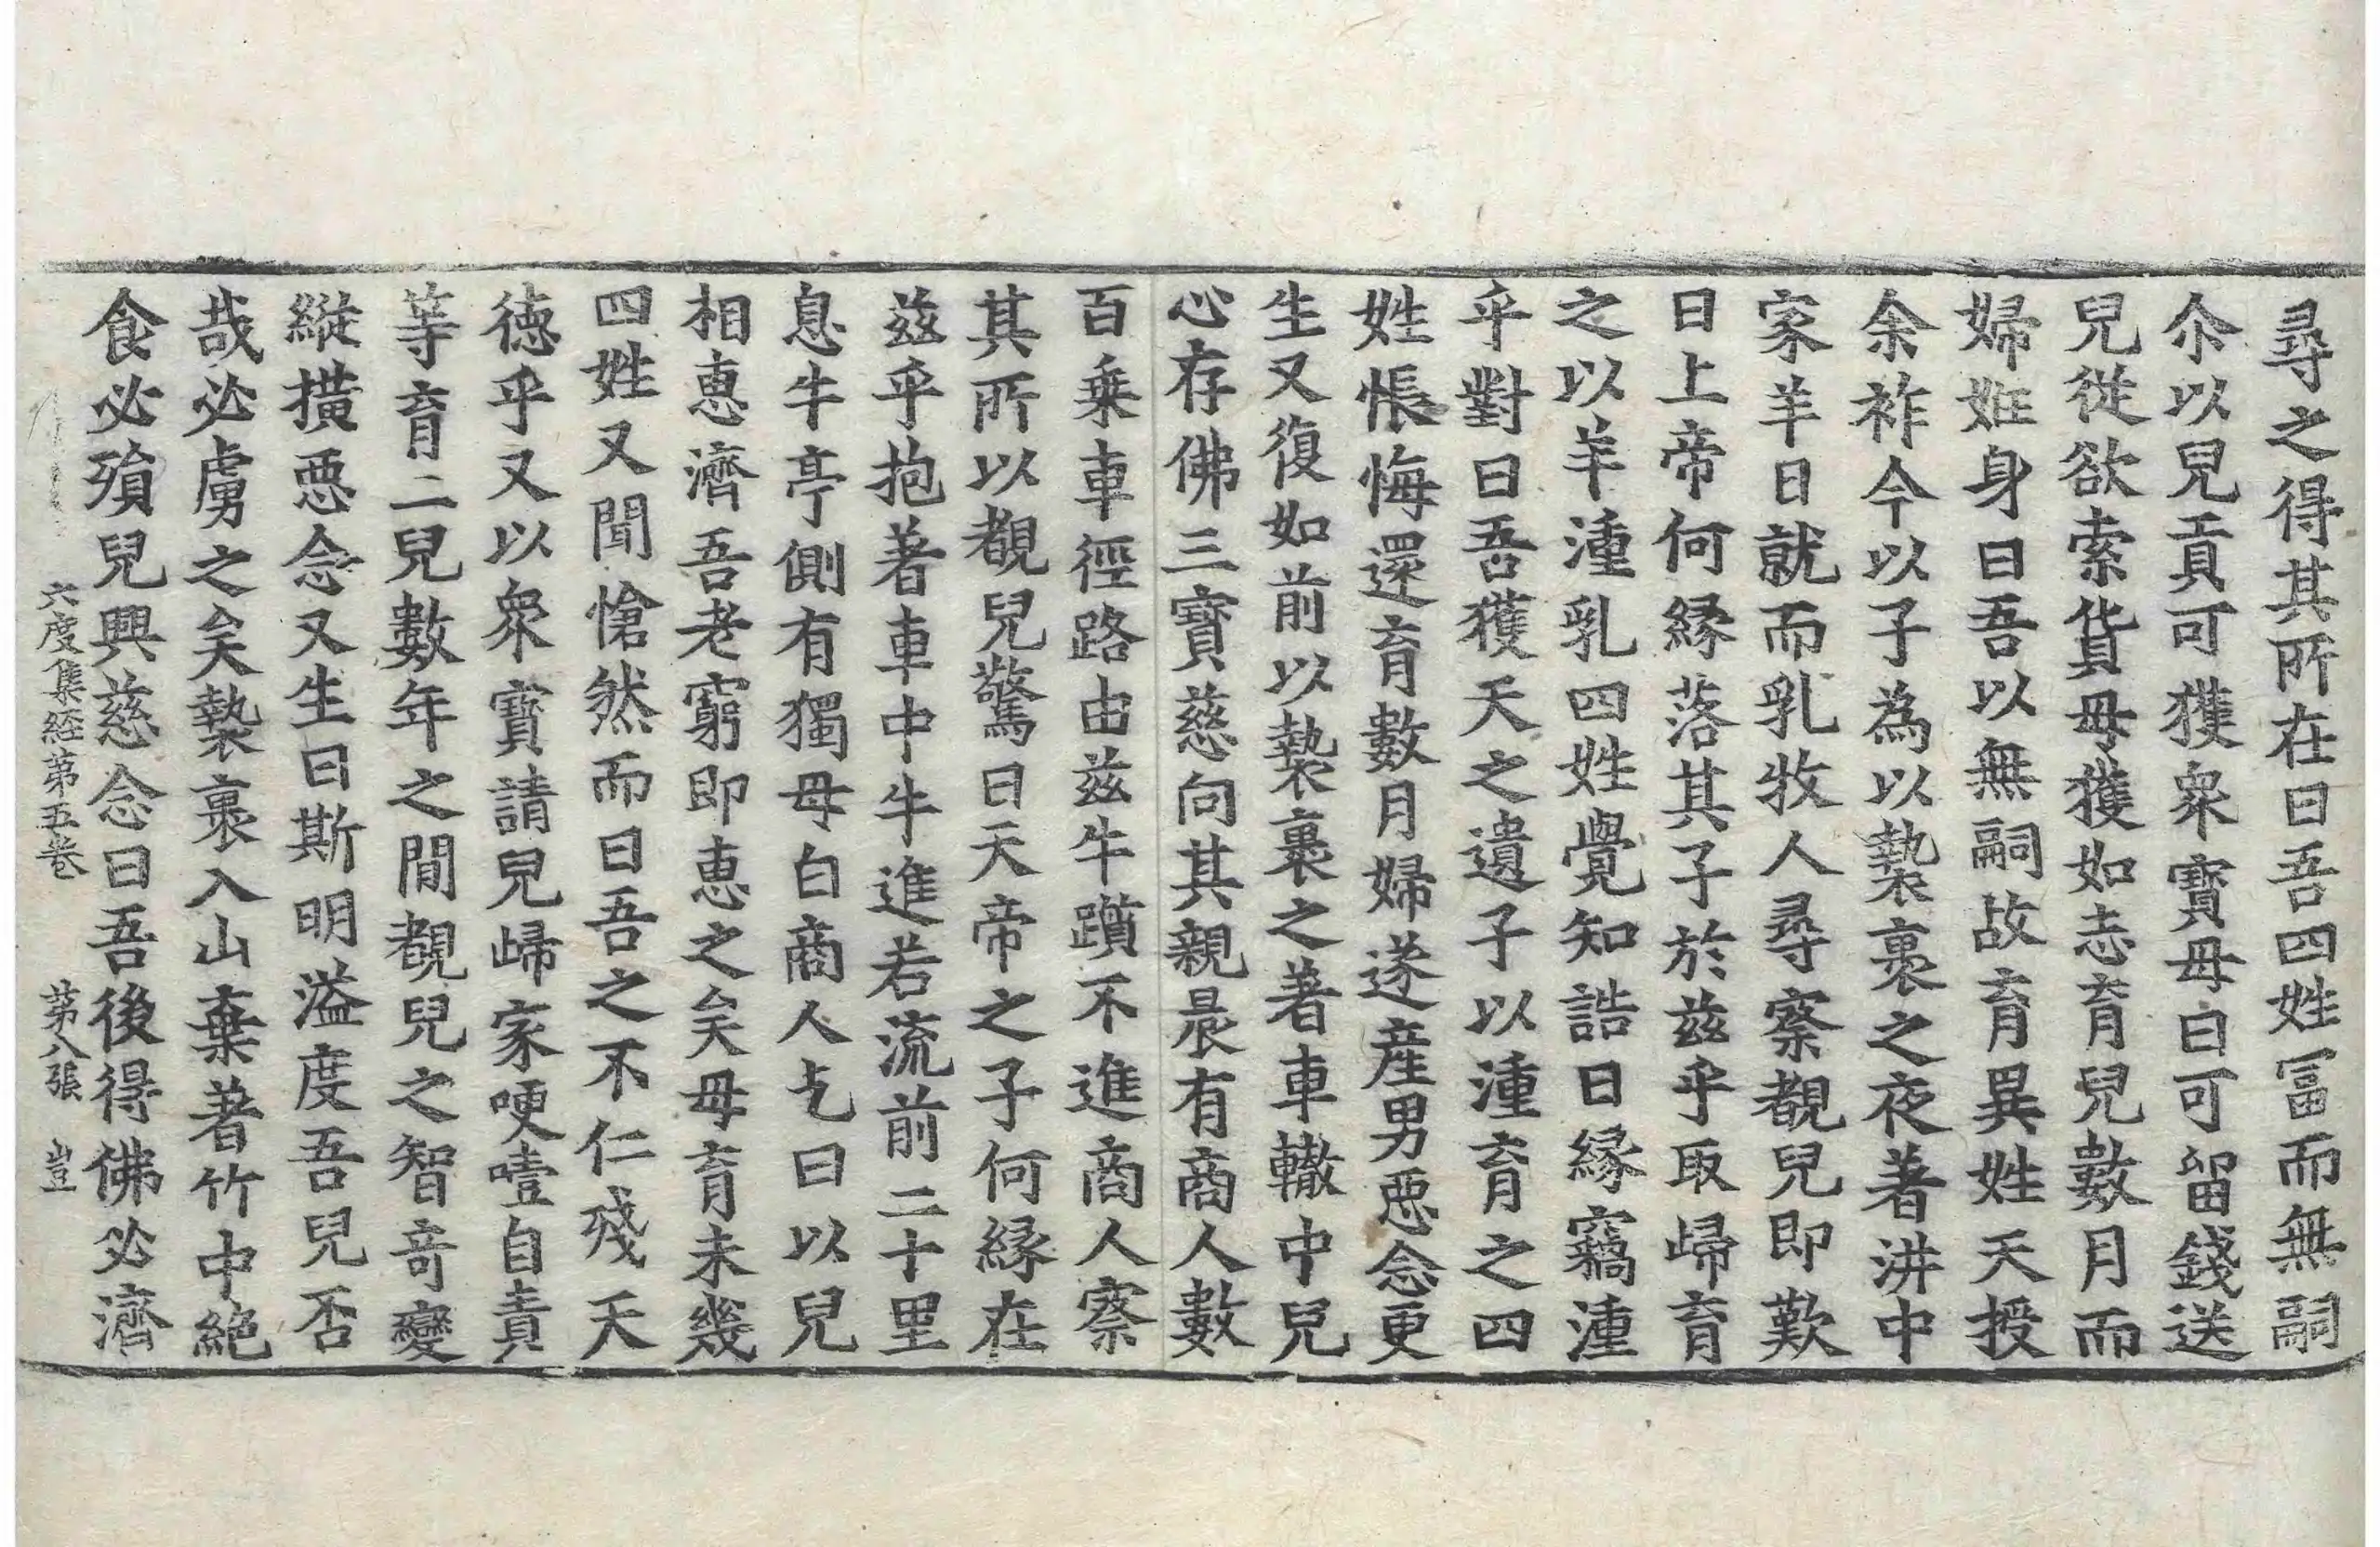 尋之得其所在曰吾四姓冨而無嗣
尒以兒貢可獲衆寶母曰可留錢送
兒從欲索貨母獲如志育兒數月而
婦姙身曰吾以無嗣故育異姓天授
余祚今以子為以褺裹之夜著汫中
家羊日就而乳牧人尋察覩兒即歎
曰上帝何縁落其子於兹乎取歸育
之以羊湩乳四姓覺知誥曰縁竊湩
乎對曰吾獲天之遺子以湩育之四
姓悵悔還育數月婦遂產男惡念更
生又復如前以褺裹之著車轍中兒
心存佛三寶慈向其親晨有商人數
百乗車徑路由兹牛躓不進商人察
其所以覩兒驚曰天帝之子何縁在
兹乎抱著車中牛進若流前二十里
息牛亭側有獨母白商人乞曰以兒
相惠濟吾老窮即惠之矣母育未幾
四姓又聞愴然而曰吾之不仁殘天
德乎又以衆寶請兒歸家哽噎自責
等育二兒數年之間覩兒之智奇變
縱撗惡念又生曰斯明溢度吾兒否
哉必虜之矣褺裹入山棄著竹中絶
食必殞兒興慈念曰吾後得佛必濟
六度集経第五卷 第八張 豈